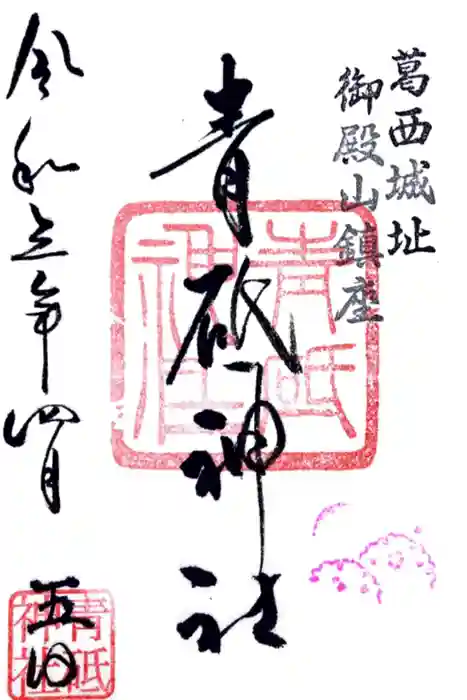 葛西城址
御殿山鎮座
青砥神社
青砥神社
令和五年四月五日
青砥神社